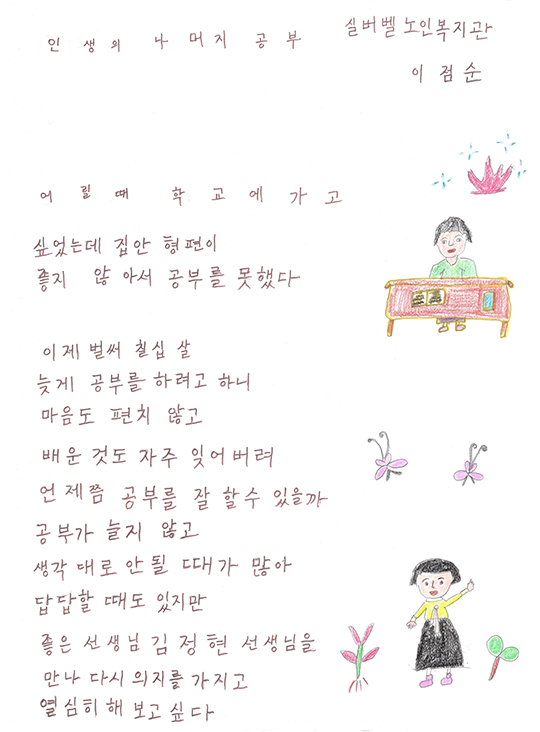 인생의 나머지 공부
실버벨 노인복지관
이점순
어릴때 학교에 가고
싶었는데 집안 형편이
좋지 않아서 공부를 못했다
이제 벌써 칠십 살
늦게 공부를 하려고 하니
마음도 편치 않고
배운 것도 자주 잊어버려
언제쯤 공부를 잘 할수 있을까
공부가 늘지 않고
생각 대로 안될 때가 많아
답답할 때도 있지만
좋은 선생님 김정현 선생님을
만나 다시 의지를 가지고
열심히 해 보고 싶다